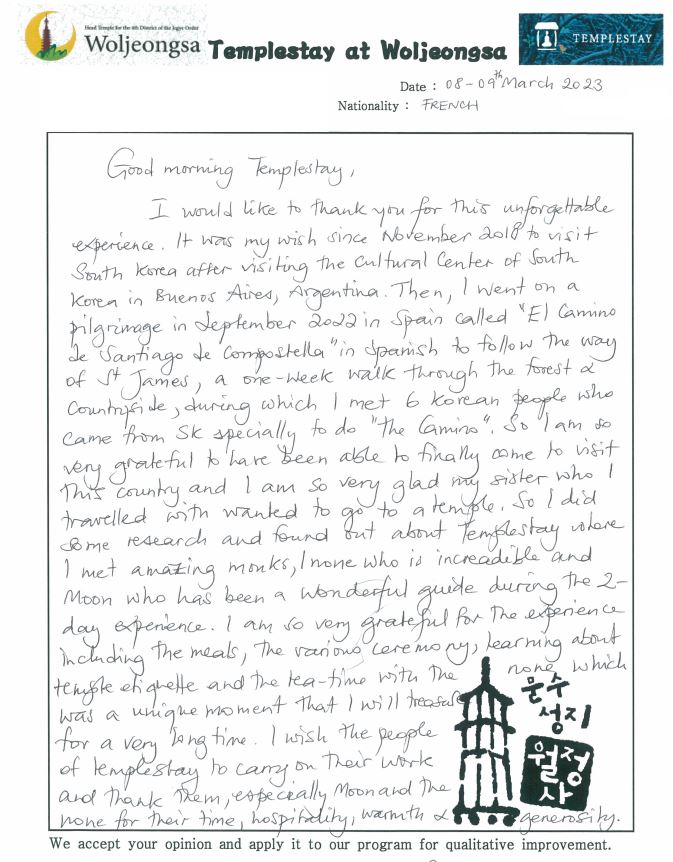 Head Temple for the 4th District of the Jogye Order
Woljeongsa
Templestay at Woljeongsa
TEMPLESTAY
Date : 08-09th March 2023
Nationality : FRENCH
Good morning Templestay,
I would like to thank you for this unforgettable
experience. It was my wish since November 2018 to visit
South Korea after visiting the Cultural Center of South
Korea in Buenos Aires, Argentina. Then, I went on a
pilgrimage in September 2022 in Spain called "El Camino
de Santiago de Compostella" in Spanish to follow the way
of St James, a one-week walk through the forest &
Countryside, during which I met 6 Korean people who
came from SK specially to do "The Camino". So I am so
very grateful to have been able to finally come to visit
this country and I am so very glad my sister who I
travelled with wanted to go to a temple. So I did
some research and found out about Templestay where
I met amazing monks, 1 none who is increadible and
Moon who has been a wonderful guide during the 2-
day experience. I am so very grateful for the experience
including the meals, the various ceremony, learning about
temple etiquette and the tea-time with the none which
was a unique moment that I will treasure
for a very long time. I wish the people
of templestay to carry on their work
and thank them, especially Moon and the
none for their time, hospitality, warmth & generosity.
문수
성지
월정
사
We accept your opinion and apply it to our program for qualitative improvement.